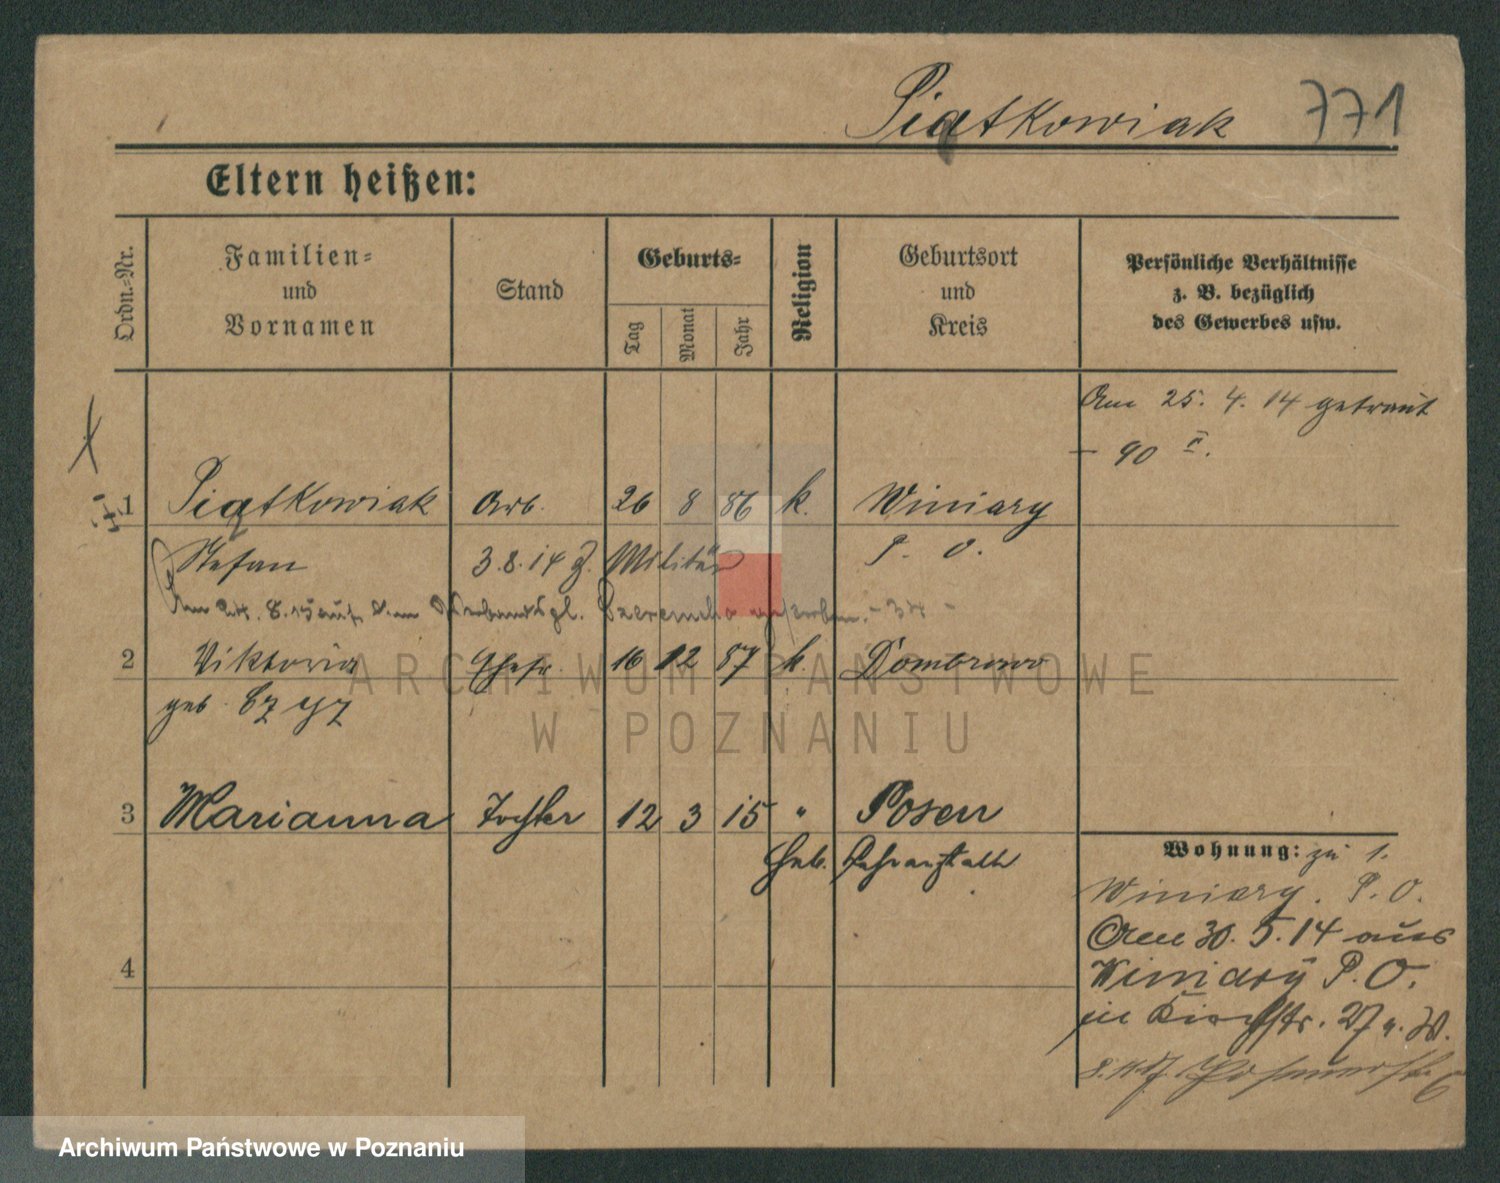 Piątkowiak 771
Eltern heißen:
Ordn.-Nr.
Familien-
und
Vornamen
Stand
Geburts-
Tag
Monat
Jahr
Religion
Geburtsort
und
Kreis
Persönliche Verhältnisse
z. B. bezüglich
des Gewerbes usw.
Am 25. 4. 14 getraut
- 90 II.
1 Piątkowiak Arb. 26 8 86 k. Winiary
Stefan 3.8.14 z. Militär P. O.
Am 24. 8. 15 auf dem gestorben. - 34 -
2 Viktoria Ehefr. 16 12 87 k. Dombrowo
geb. Czyz
3 Marianna Tochter 12 3 15 " Posen
Heb. Lehranstalt
4
Wohnung: zu 1.
Winiary. P. O.
Am 30. 5. 14 aus
Winiary P. O.
in Kirchstr. 27 a. W.
Posenerstr. 6
ARCHIWUM PAŃSTWOWE
W POZNANIU
Archiwum Państwowe w Poznaniu